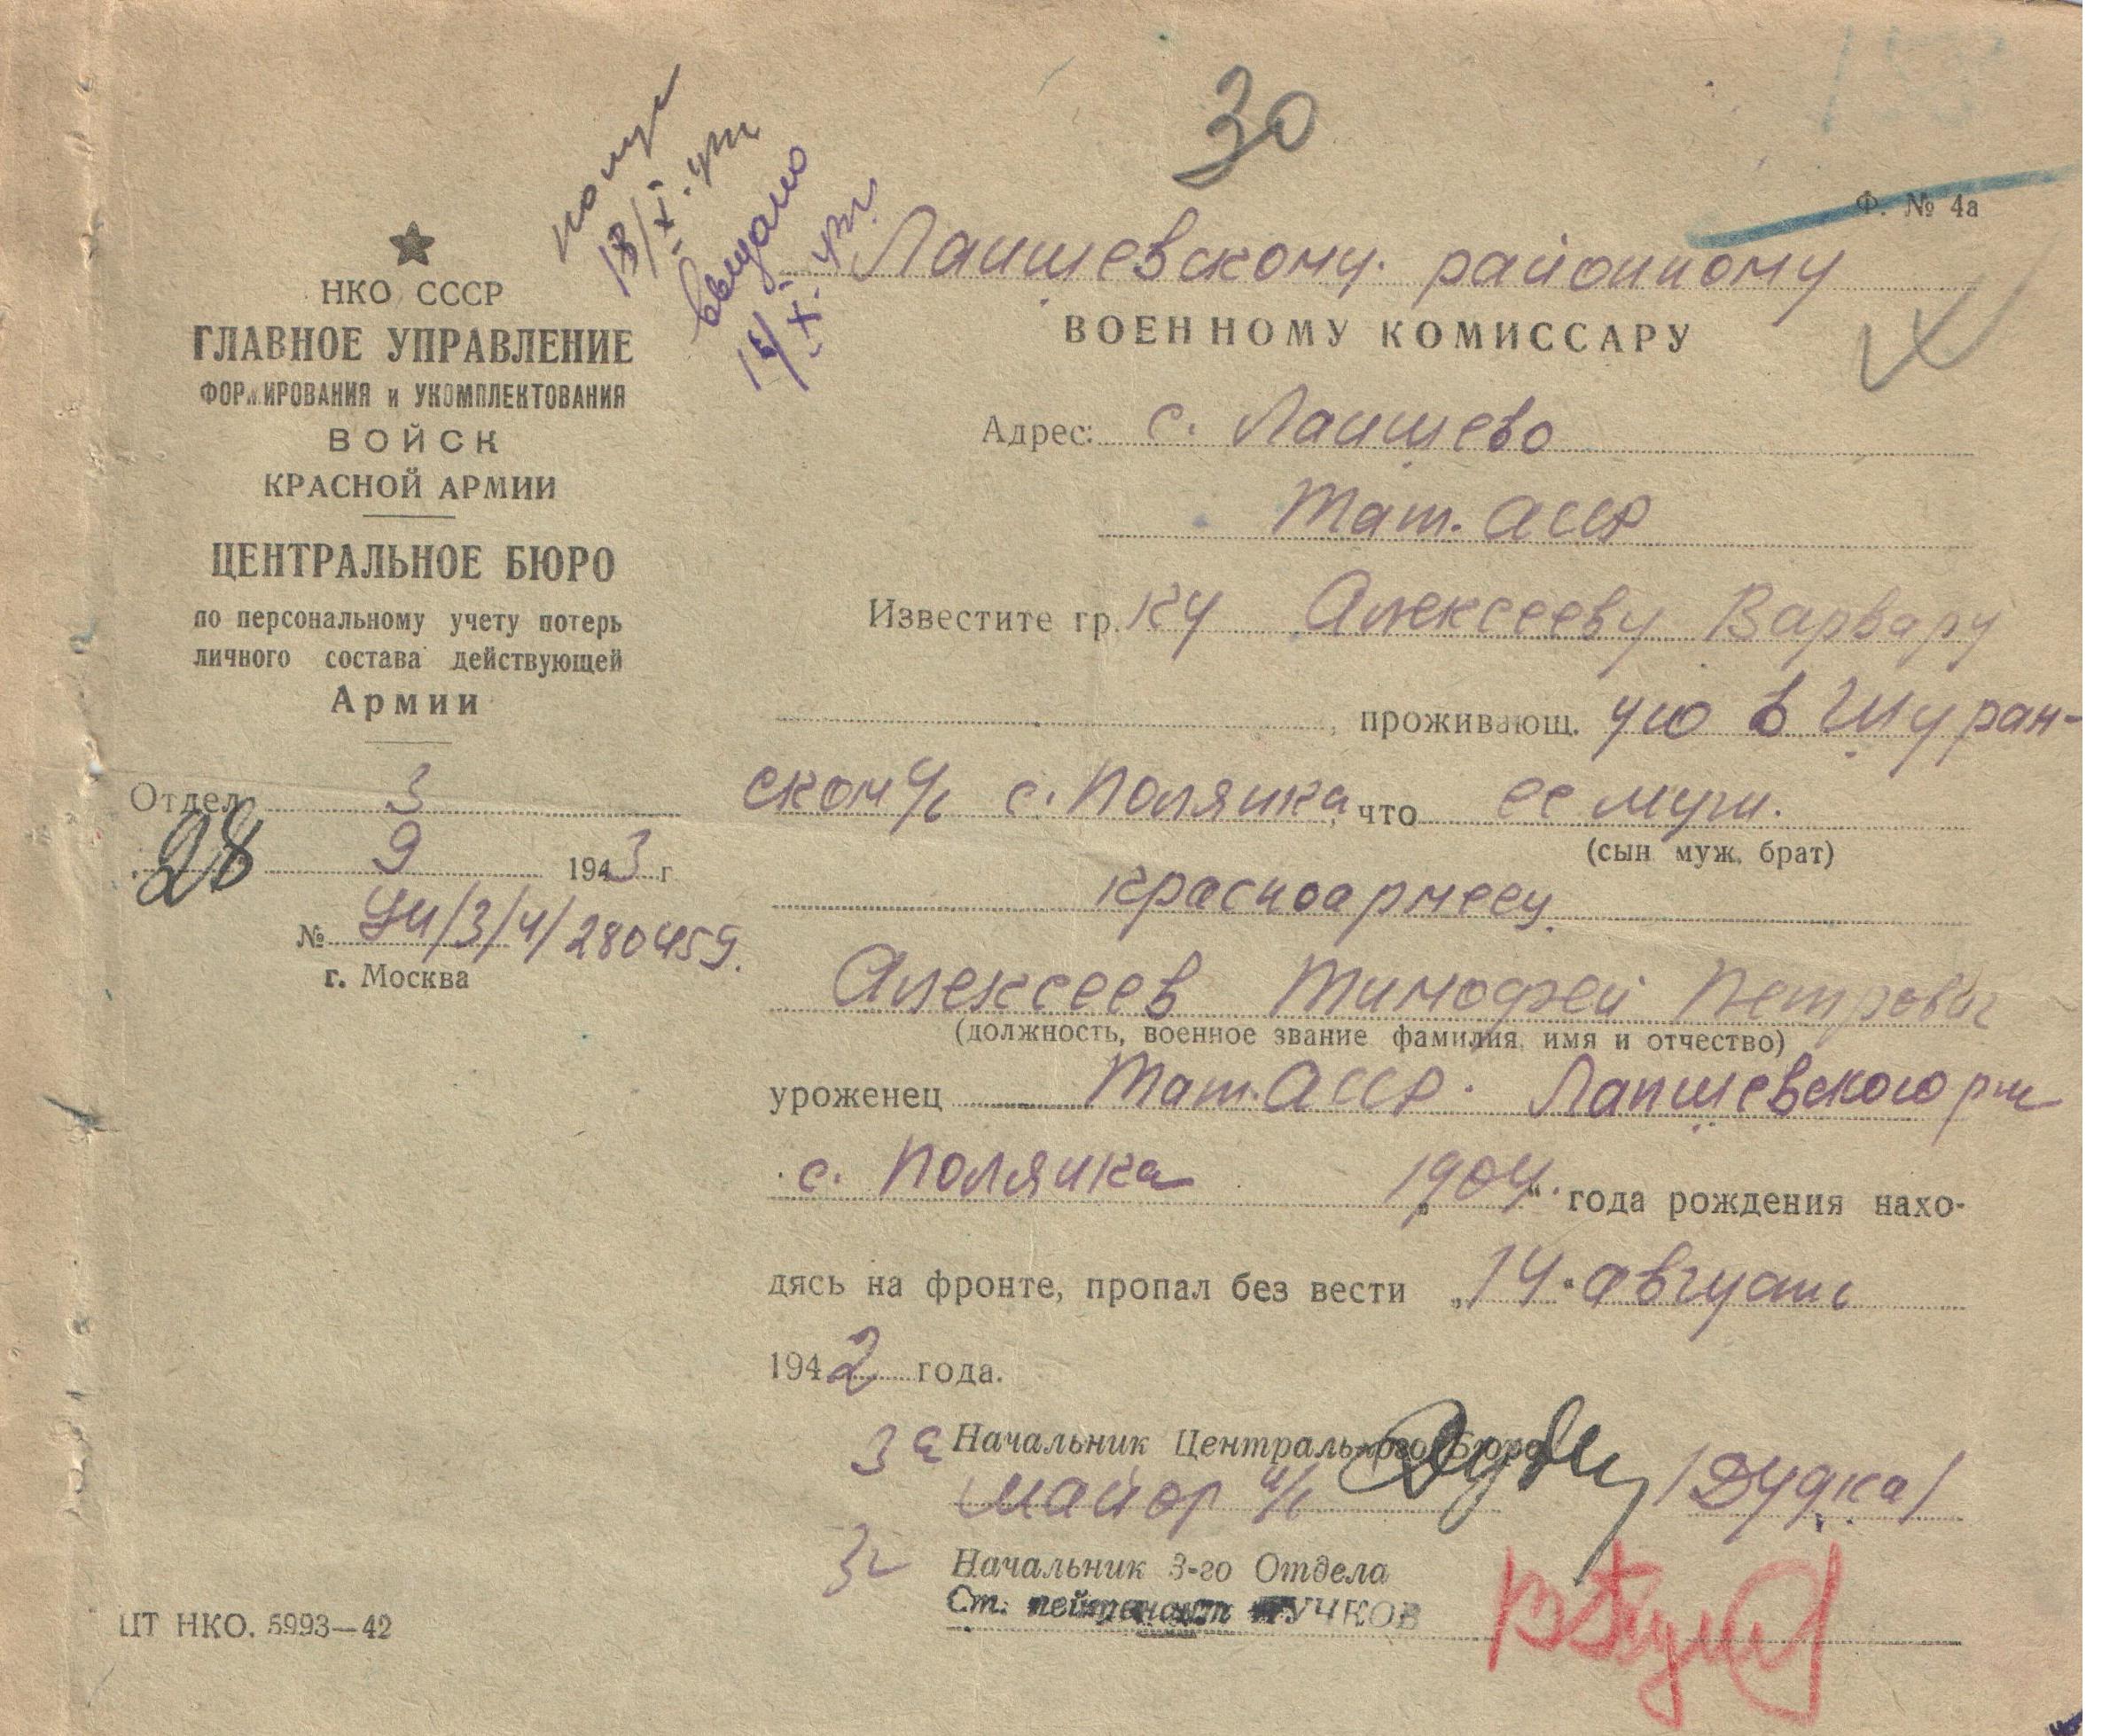 30
Ф. № 4а
18/X
вручено
16/X
НКО СССР
ГЛАВНОЕ УПРАВЛЕНИЕ
ФОРМИРОВАНИЯ и УКОМПЛЕКТОВАНИЯ
ВОЙСК
КРАСНОЙ АРМИИ
ЦЕНТРАЛЬНОЕ БЮРО
по персональному учету потерь
личного состава действующей
Армии
Отдел 3
28 9 1943 г.
№ УН/3/4/280459.
г. Москва
ЦТ НКО. 5993—42
Лаишевскому районному
ВОЕННОМУ КОМИССАРУ
Адрес: с. Лаишево
Тат. АССР
Известите гр.ку Алексееву Варвару
, проживающ. ую в Шуран-
ском с/с с. Полянка, что ее муж.
(сын муж, брат)
красноармеец.
Алексеев Тимофей Петрович
(должность, военное звание фамилия, имя и отчество)
уроженец Тат. АССР. Лапшевского р-на
с. Полянка „1904“ года рождения нахо-
дясь на фронте, пропал без вести „14“ августа
1942 года.
За Начальник Центрального Бюро
майор и/с /Дудка/
Начальник 3-го Отдела
Ст. лейтенант ПУЧКОВ